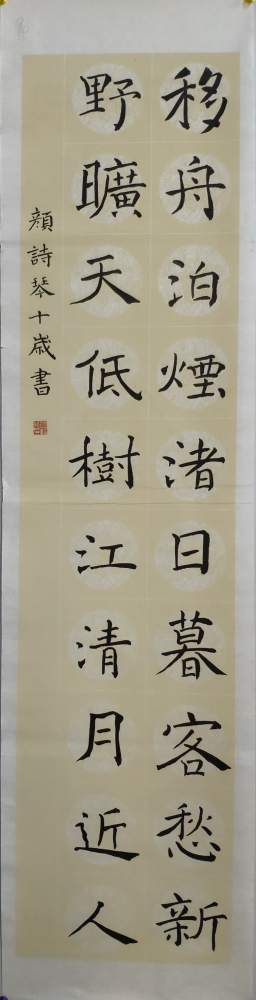 移舟泊煙渚日暮客愁新
野曠天低樹江清月近人
顏詩琴十歲書